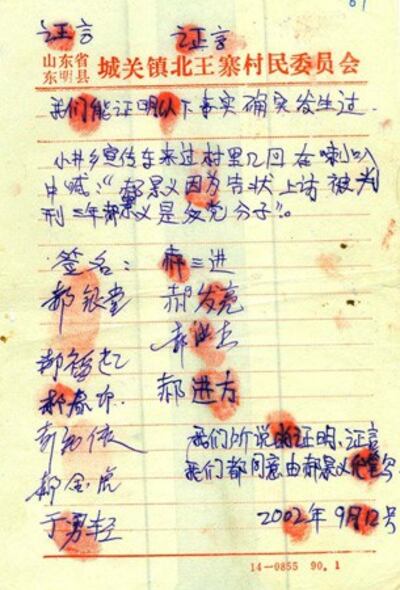 证言 证言
山东省
东明县 城关镇北王寨村民委员会
我们能证明以下事实确实发生过.
小井乡宣传车来过村里几回在喇叭
中喊:“郝景义因为告状上访被判
刑三年郝景义是分子”。
签名: 郝三进
郝银堂 郝发亮
郝
郝进方
郝春
郝金虎
我们所说的证明、证言
我们都同意由郝景义
2002年9月12号
14-0855 90.1